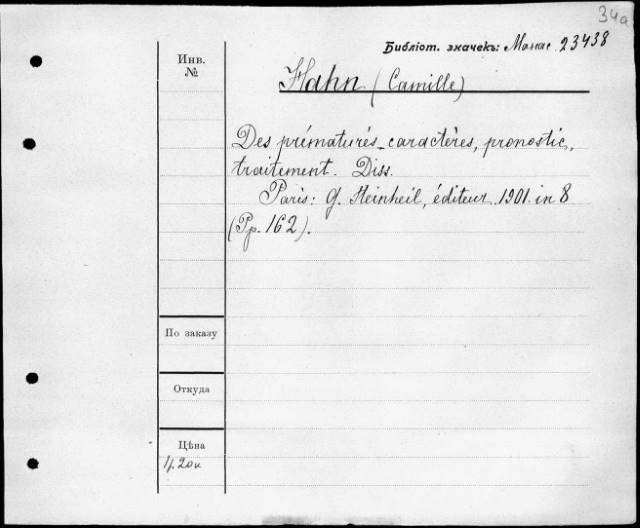 34a
Библіот. значекъ: Манас 23438
Инв.
№
Hahn (Camille)
Des prématurés_caractères, pronostic,
traitement. Diss.
Paris: G. Steinheil, éditeur. 1901. in 8
(Pp. 162).
По заказу
Откуда
Цѣна
1р. 20к